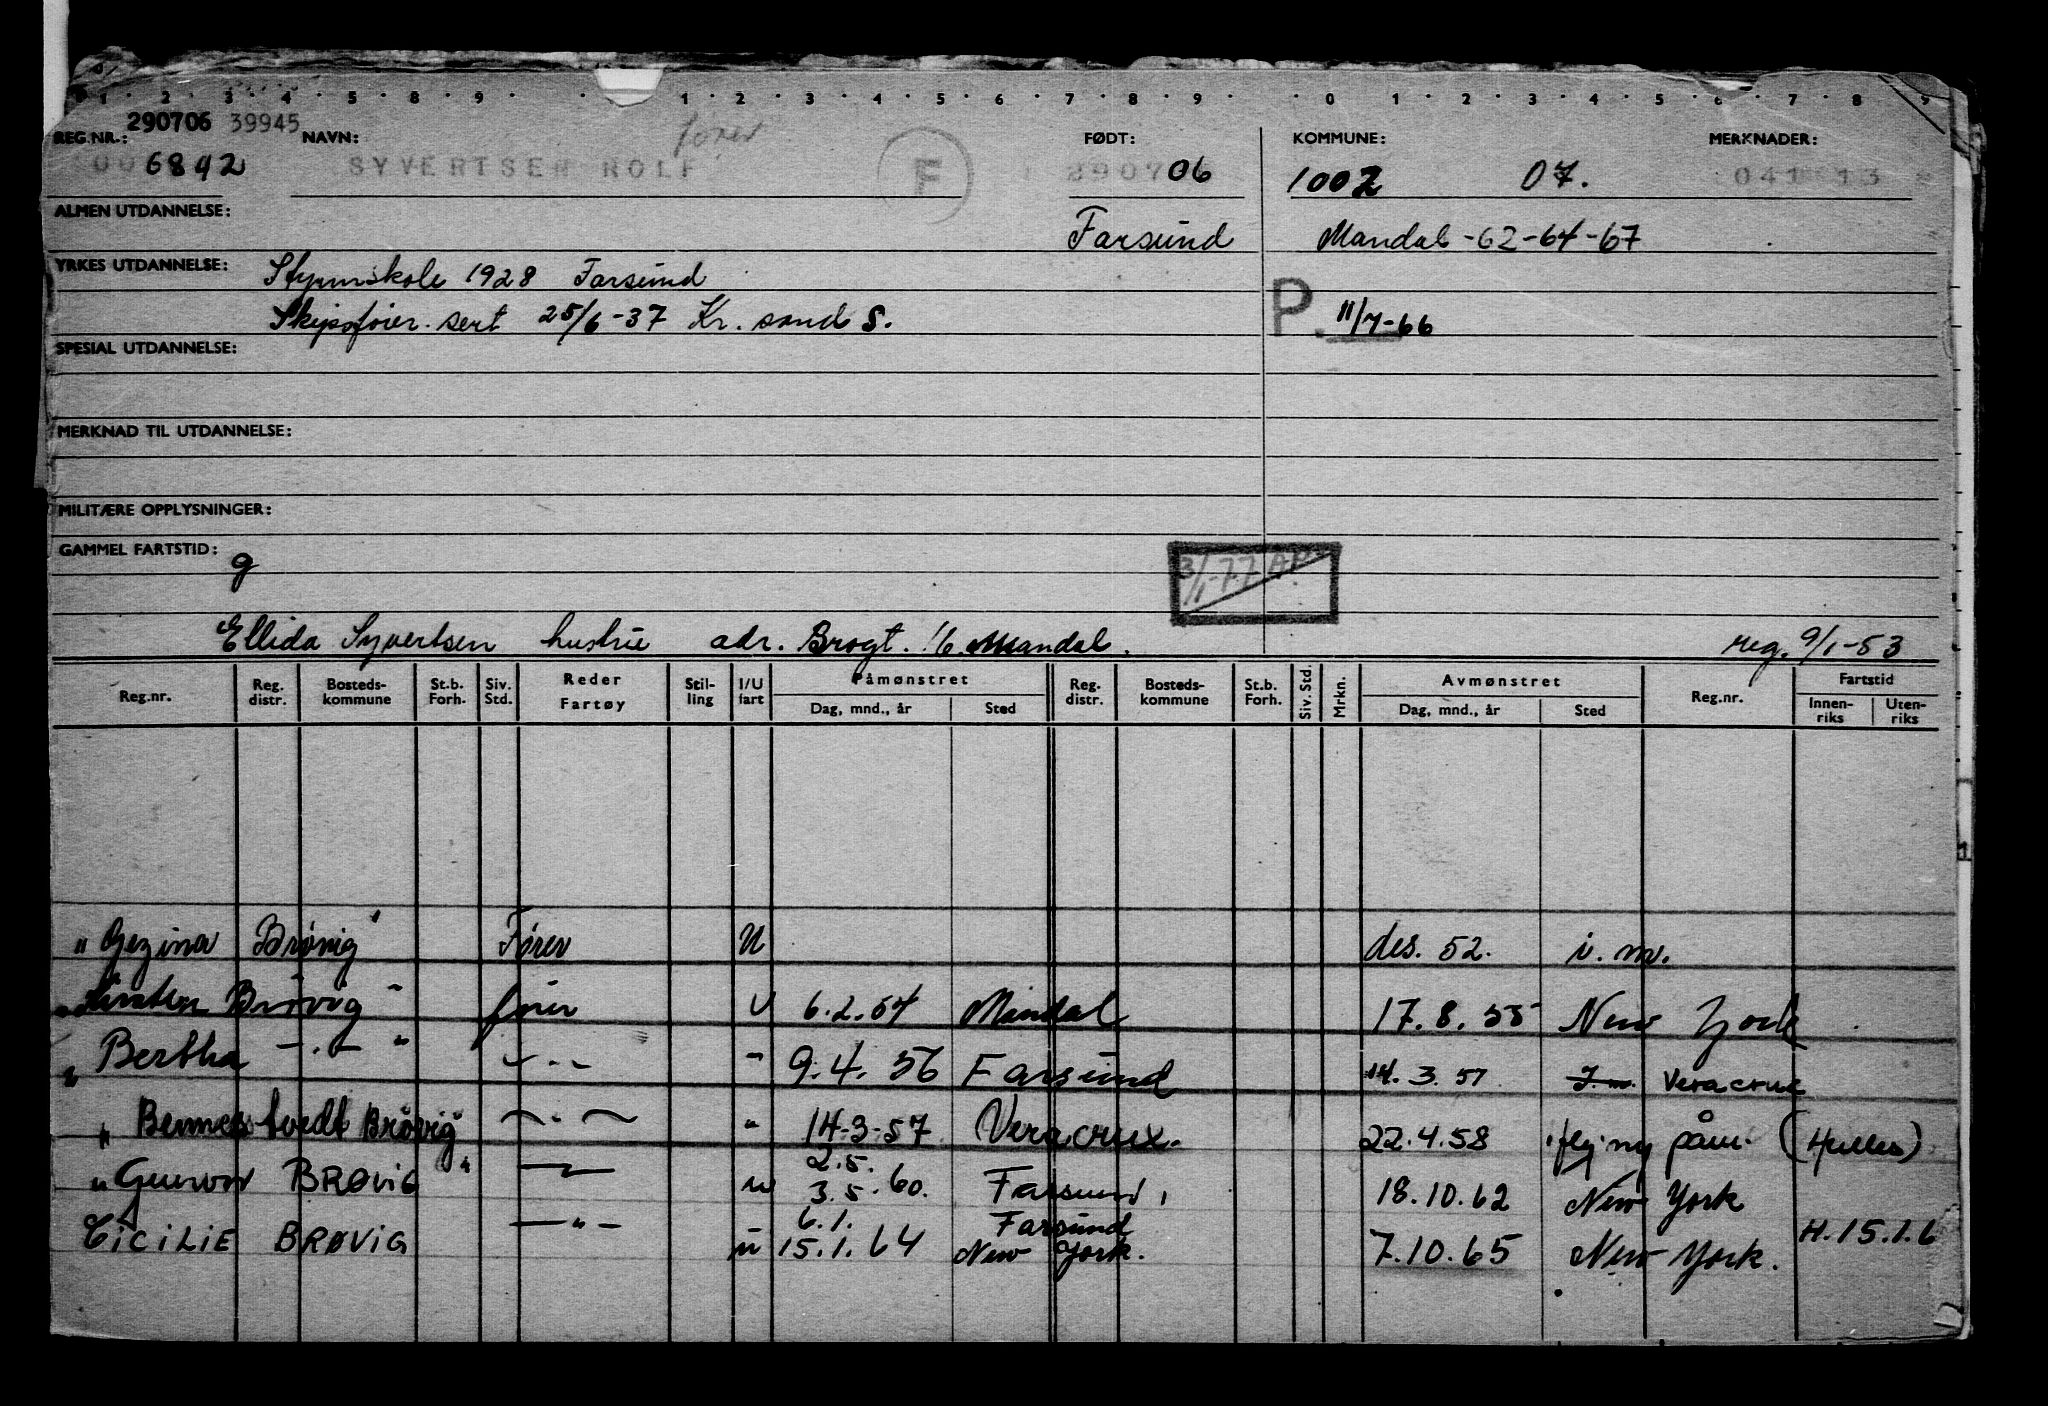 1 2 3 4 5 8 9 1 2 3 4 5 6 7 8 9 0 1 2 3 4 5 6 7 8 9
290706 39945
REG.NR.: NAVN: fører FØDT: KOMMUNE: MERKNADER:
6892 SYVERTSEN ROLF F 290706 1002 07. 041 13
ALMEN UTDANNELSE: Farsund Mandal -62-64-67
YRKES UTDANNELSE: Styrmskole 1928 Farsund
Skipsfører. sert 25/6-37 Kr. sand S. P. 11/7-66
SPESIAL UTDANNELSE:
MERKNAD TIL UTDANNELSE:
MILITÆRE OPPLYSNINGER:
GAMMEL FARTSTID: g
3/1-77 AP
Ellida Syvertsen hustru adr. Brogt. 16. Mandal. reg. 9/1-53
Reg.nr. Reg. distr. Bosteds- kommune St.b. Forh. Siv. Std. Reder Fartøy Stil- ling I/U fart Påmønstret Dag, mnd., år Sted Reg. distr. Bosteds- kommune St.b. Forh. Siv. Std. Mrkn. Avmønstret Dag, mnd., år Sted Reg.nr. Fartstid Innen- riks Uten- riks
" Gezina Brøvig " Fører U des. 52. i. m.
" Kirsten Brövig " fører U 6.2.54 Mandal 17.8.55 New York
" Bertha -.- " -"- " 9.4.56 Farsund 14.3.57 I.m. Veracruz
" Bennestvedt Brövig " -"- " 14-3-57 Veracrux. 22.4.58 flg ny påm. (Hulles)
" Gunvor BRØVIG " -"- u 2.5. 3.5.60. Farsund, 18.10.62 New York
CICILIE BRØVIG -"- u 6.1. Farsund
15.1.64 New York. 7.10.65 New York. H.15.1.6